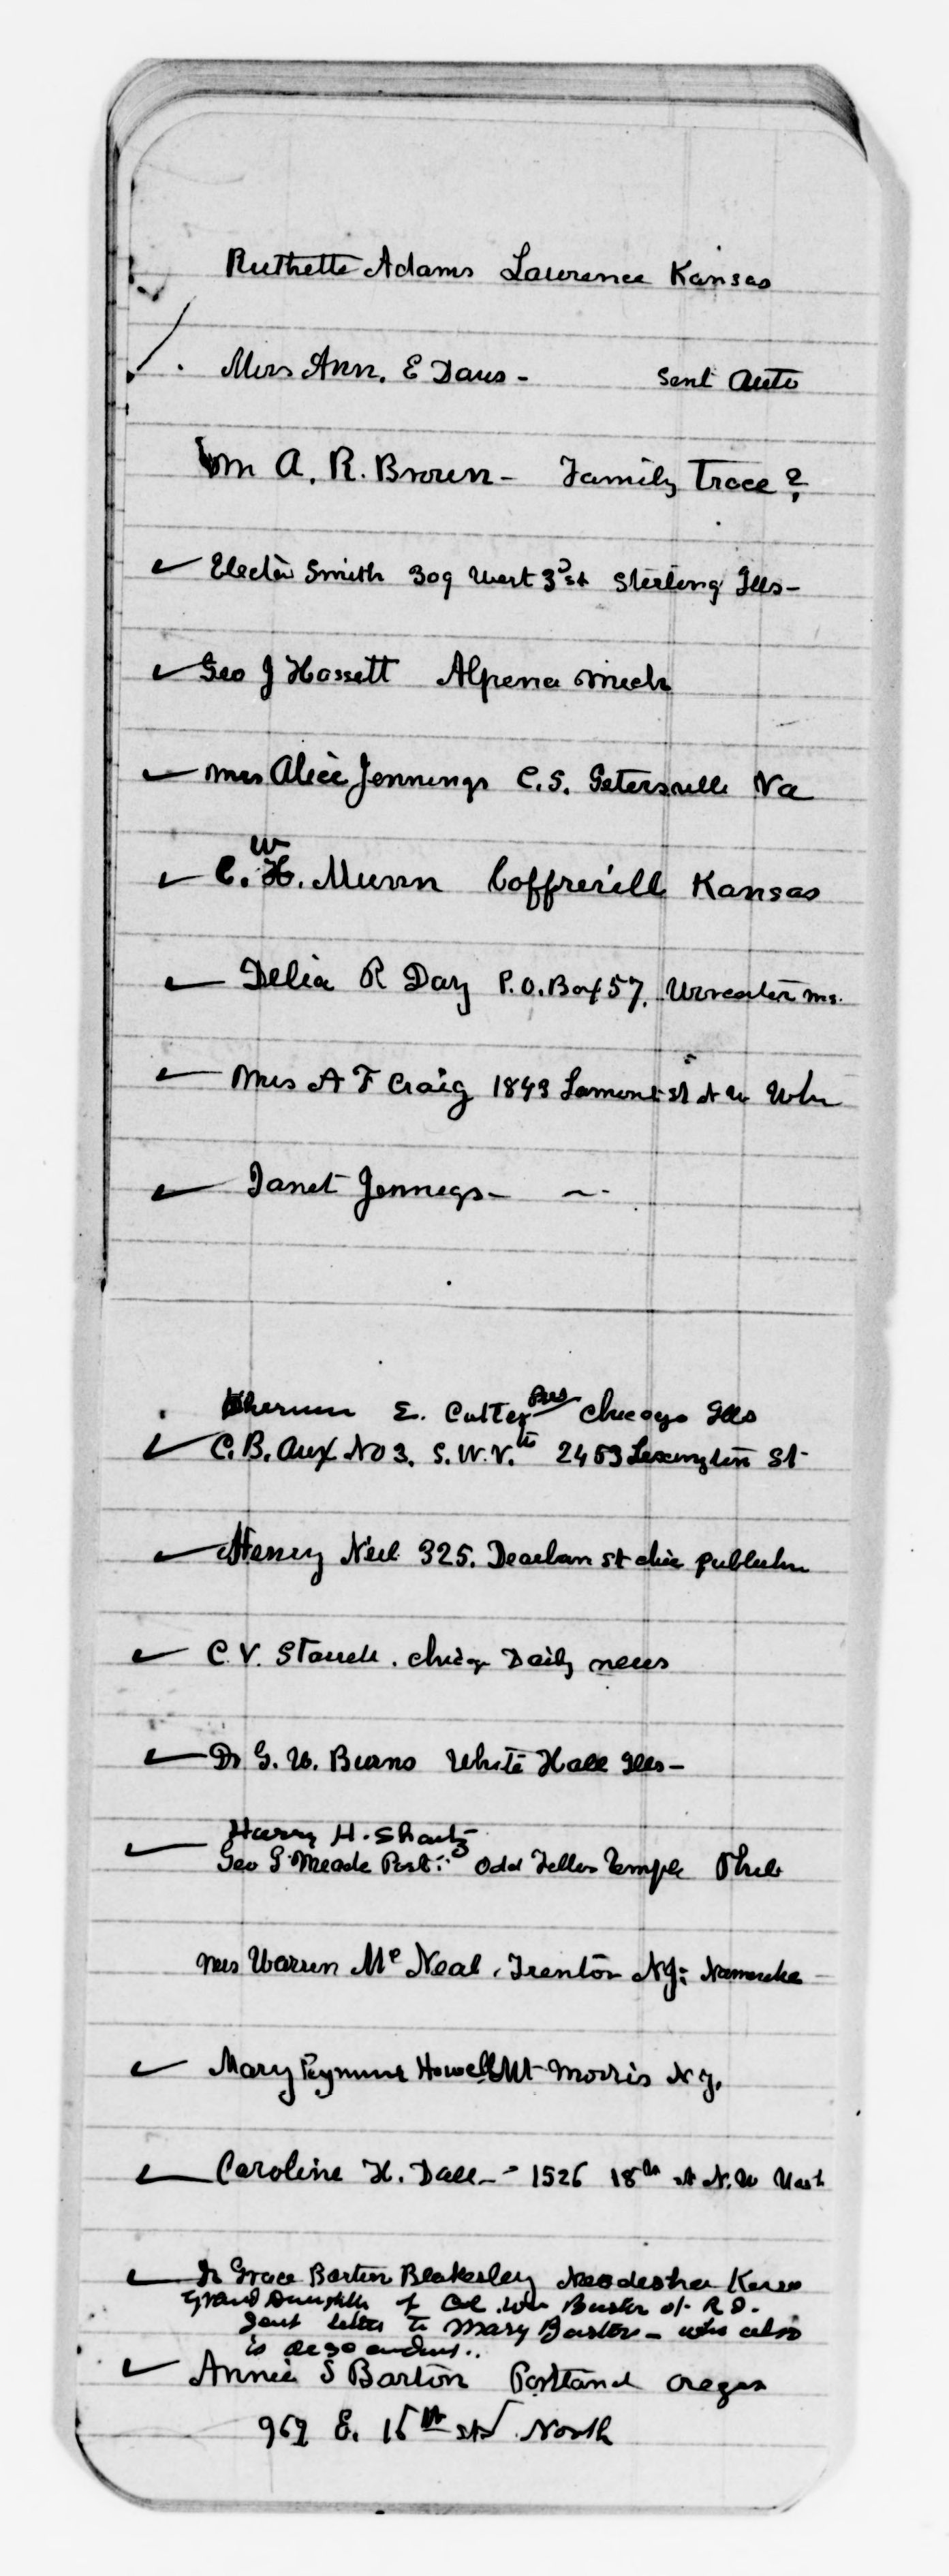 Ruthette Adams Lawrence Kansas
Miss Ann. E Davis - Sent Auto
Wm A. R. Brown - Family Trace?
Electa Smith 309 West 3d st Sterling Ills -
Geo J Hossett Alpena Mich
Mrs Alice Jennings C.S. Va
W
C. H. Munn Kansas
Delia R Day P.O. Box 57. Worcester Ms.
Mrs A F Craig 1843 Lamont st N W Wn
Janet Jennings -
E. Cutter Pres Chicago Ills
C. B. Aux No 3. S. W. V. 2453 Lexington St
Henry Neil 325. Dearborn st chic
C. V. chicago Daily news
Dr G. W. Burns White Hall Ills -
Harry H. Shantz
Geo G Meade Post Odd Fellows Temple Phil
Mrs Warren Mc Neal, Trenton N.J:
Mary Howell Mt Morris N Y.
Caroline H. Dall - 1526 18th st N. W Wash
Dr Grace Barton Blakesley Neodesha Kans
Grand Daughter of Col. Wm Barton of R.
Sent letter to Mary Barton - who also
is
Annie S Barton Portland Oregon
969 E. 16th st North